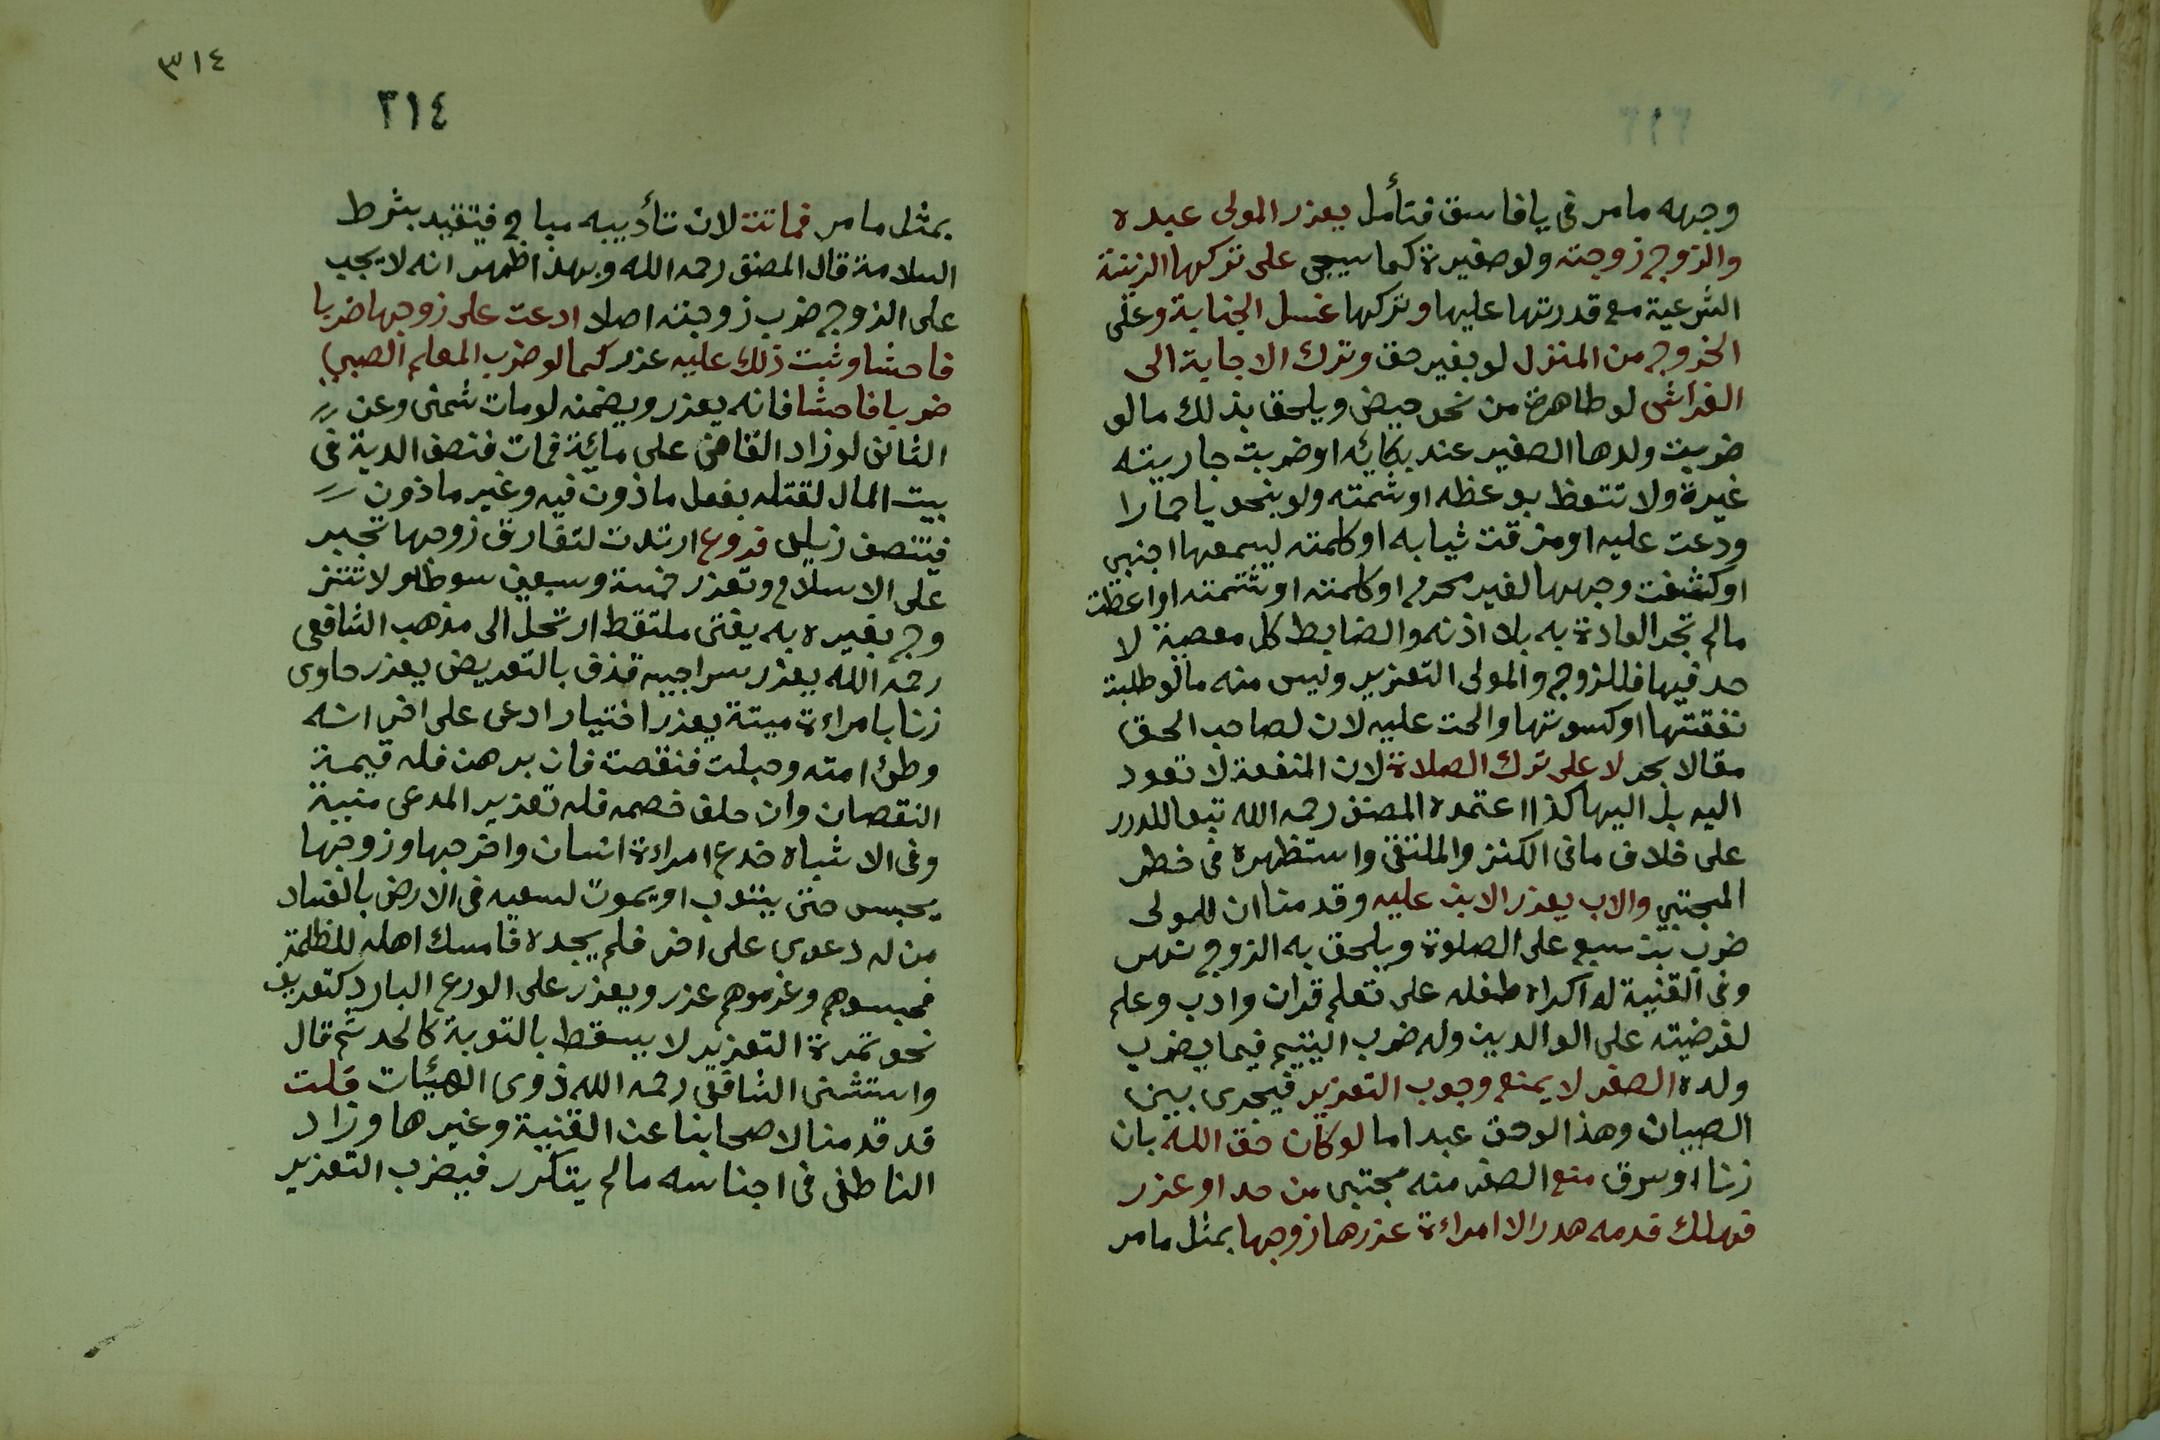 وجهه مامر فى يافاسق فتأمل يعزر المولى عبده
والزوج زوجته ولو صغيرة كما سيجى على تركها الزينة
الشرعية مع قدرتها عليها وتركها غسل الجنابة وعلى
الخروج من المنزل لو بغير حق وترك الاجابة الى
الفراش لو طاهرة من نحو حيض ويلحق بذلك مالو
ضربت ولدها الصغير عند بكائه او ضربت جاريته
غيرة ولا تتعظ بوعظه او شتمته ولو بنحو ياحمارا
ودعت عليه او مزقت ثيابه او كلمته ليسمعها اجنبى
او كشفت وجهها لغير محرم او كلمته او شتمته او اعطت
مالم تجر العادة به بلا اذنه والضابط كل معصية لا
حد فيها فللزوج والمولى التعزير وليس منه مالو طلبت
نفقتها او كسوتها والحت عليه لان لصاحب الحق
مقالا بحر لا على ترك الصلاة لان المنفعة لا تعود
اليه بل اليها كذا اعتمده المصنف رحمه الله تبعا للدرر
على خلاف مافى الكنز والملتقى واستظهره فى حظر
المجتبى والاب يعزر الابن عليه وقدمنا ان للمولى
ضرب بنت سبع على الصلوة ويلحق به الزوج نهر
وفى القنية له اكراه طفله على تعلم قران وادب وعلم
لفرضيته على الوالدين وله ضرب اليتيم فيما يضرب
ولده الصغر لا يمنع وجوب التعزير فيجرى بين
الصبيان وهذا لو حق عبد اما لو كان حق الله بان
زنا او سرق منع الصغر منه مجتبى من حد او عزر
فهلك فدمه هدر الا امراءة عزرها زوجها بمثل مامر
٣١٤
٣١٤
بمثل مامر فماتت لان تأديبه مباح فيتقيد بشرط
السلامة قال المصنف رحمه الله وبهذا ظهر انه لا يجب
على الزوج ضرب زوجته اصلا ادعت على زوجها ضربا
فاحشا وثبت ذلك عليه عزر كما لو ضرب المعلم الصبى
ضربا فاحشا فانه يعزر ويضمنه لومات شمنى وعن
الثانى لو زاد القاضى على مائة فمات فنصف الدية فى
بيت المال لقتله بفعل ماذون فيه وغير ماذون
فيتنصف زيلعى فروع ارتدت لتفارق زوجها تجبر
على الاسلام وتعزر خمسة وسبعين سوطا ولا تتز
وج بغيره به يفتى ملتقط ارتحل الى مذهب الشافعى
رحمه الله يعزر سراجيه قذف بالتعريض يعزر حاوى
زنا بامراءة ميتة يعزر اختيار ادعى على اخر انه
وطئ امته وحبلت فنقصت فان برهن فله قيمة
النقصان وان حلف خصمه فله تعزير المدعى منية
وفى الاشباه خدع امراءة انسان واخرجها وزوجها
يحبس حتى يتوب او يموت لسعيه فى الارض بالفساد
من له دعوى على اخر فلم يجده فامسك اهله للظلمة
فحبسوهم وغرموهم عزر ويعزر على الورع البارد كتعريف
نحو تمرة التعزير لا يسقط بالتوبة كالحد ثم قال
واستثنى الشافعى رحمه الله ذوى الهيئات قلت
قد قدمنا لاصحابنا عن القنية وغيرها وزاد
الناطفى فى اجناسه مالم يتكرر فيضرب التعزير